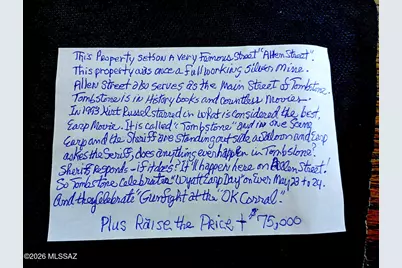 This Property sets on A very Famous Street "Allen Street".
This property was once a full working Silver Mine.
Allen Street also serves as the Main Street of Tombstone.
Tombstone is in History books and countless Movies.
In 1993 Kirt Russel starred in what is considered the best
Earp Movie. It is called "Tombstone" and in one Scene
Earp and the Sheriff are standing outside a saloon and Earp
asks the Seriff, does anything ever happen in Tombstone?
Sheriff Responds - if it does? It'll happen here on Allen Street!
So Tombstone celebrates "Wyatt Earp Day" on
May 23 + 24.
And they Celebrate "Gunfight at the "OK Corral"
Plus Raise the Price + $75,000
©2026 MLSSAZ